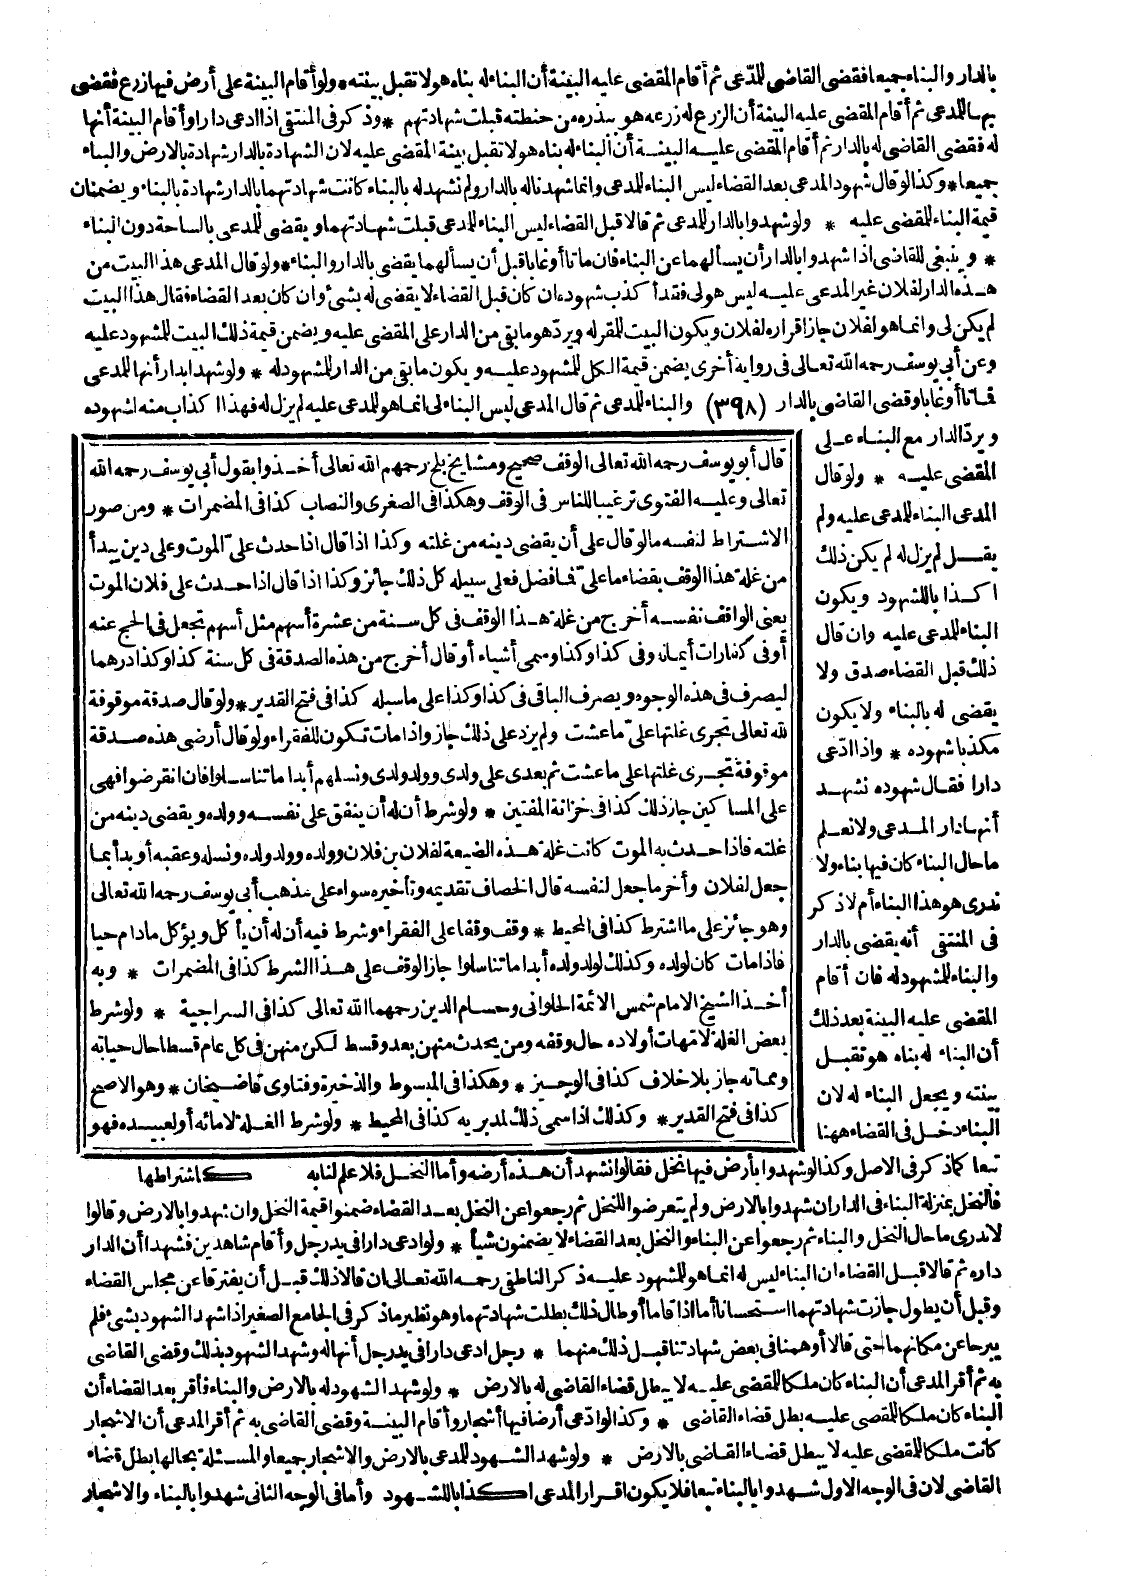 بالدار والبناء جميعا فقضى القاضى للمدّعى ثم أقام المقضى عليه البينة أن البناء له بناه هو لا تقبل بينته * ولو أقام البينة على أرض فيها زرع فقضى
بها للمدعى ثم أقام المقضى عليه البينة أن الزرع له زرعه هو ببذره من حنطته قبلت شهادتهم * وذكر فى المنتقى اذا ادعى دارا وأقام البينة أنها
له فقضى القاضى له بالدار ثم أقام المقضى عليه البينة أن البناء له بناه هو لا تقبل بينة المقضى عليه لان الشهادة بالدار شهادة بالارض والبناء
جميعا * وكذا لو قال شهود المدعى بعد القضاء ليس البناء للمدعى وانما شهدنا له بالدار ولم نشهد له بالبناء كانت شهادتهما بالدار شهادة بالبناء ويضمنان
قيمة البناء للمقضى عليه * ولو شهدوا بالدار للمدعى ثم قالا قبل القضاء ليس البناء للمدعى قبلت شهادتهما ويقضى للمدعى بالساحة دون البناء
* وينبغى للقاضى اذا شهدوا بالدار أن يسألهما عن البناء فان ماتا أو غابا قبل أن يسألهما يقضى بالدار والبناء * ولو قال المدعى هذا البيت من
هذه الدار لفلان غير المدعى عليه ليس هو لى فقد أكذب شهوده ان كان قبل القضاء لا يقضى له بشئ وان كان بعد القضاء فقال هذا البيت
لم يكن لى وانما هو لفلان جاز اقراره لفلان ويكون البيت للمقر له ويردّ هو ما بقى من الدار على المقضى عليه ويضمن قيمة ذلك البيت للمشهود عليه
وعن أبى يوسف رحمه الله تعالى فى رواية أخرى يضمن قيمة الكل للمشهود عليه ويكون ما بقى من الدار للمشهود له * ولو شهدا بدار أنها للمدعى
فماتا أو غابا وقضى القاضى بالدار (٣٩٨) والبناء للمدعى ثم قال المدعى ليس البناء لى انما هو للمدعى عليه لم يزل له فهذا اكذاب منه لشهوده
ويردّ الدار مع البناء على
المقضى عليه * ولو قال
المدعى البناء للمدعى عليه ولم
يقل لم يزل له لم يكن ذلك
اكذابا للشهود ويكون
البناء للمدعى عليه وان قال
ذلك قبل القضاء صدق ولا
يقضى له بالبناء ولا يكون
مكذبا شهوده * واذا ادّعى
دارا فقال شهوده نشهد
أنها دار المدعى ولا نعلم
ما حال البناء كان فيها بناء ولا
ندرى هو هذا البناء أم لا ذكر
فى المنتقى أنه يقضى بالدار
والبناء للمشهود له فان أقام
المقضى عليه البينة بعد ذلك
أن البناء له بناه هو تقبل
بينته ويجعل البناء له لان
البناء دخل فى القضاء ههنا
قال أبو يوسف رحمه الله تعالى الوقف صحيح ومشايخ بلخ رحمهم الله تعالى أخذوا بقول أبى يوسف رحمه الله
تعالى وعليه الفتوى ترغيبا للناس فى الوقف وهكذا فى الصغرى والنصاب كذا فى المضمرات * ومن صور
الاشتراط لنفسه ما لو قال على أن يقضى دينه من غلته وكذا اذا قال اذا حدث علىّ الموت وعلى دين يبدأ
من غلة هذا الوقف بقضاء ما علىّ فما فضل فعلى سبيله كل ذلك جائز وكذا اذا قال اذا حدث على فلان الموت
يعنى الواقف نفسه أخرج من غلة هذا الوقف فى كل سنة من عشرة أسهم مثل أسهم تجعل فى الحج عنه
أو فى كفارات أيمانه وفى كذا وكذا وسمى أشياء أو قال أخرج من هذه الصدقة فى كل سنة كذا وكذا درهما
ليصرف فى هذه الوجوه ويصرف الباقى فى كذا وكذا على ما سبله كذا فى فتح القدير * ولو قال صدقة موقوفة
لله تعالى تجرى غلتها علىّ ما عشت ولم يزد على ذلك جاز واذا مات تكون للفقراء ولو قال أرضى هذه صدقة
موقوفة تجرى غلتها على ما عشت ثم بعدى على ولدى وولد ولدى ونسلهم أبدا ما تناسلوا فان انقرضوا فهى
على المساكين جاز ذلك كذا فى خزانة المفتين * ولو شرط أن له أن ينفق على نفسه وولده ويقضى دينه من
غلته فاذا حدث به الموت كانت غلة هذه الضيعة لفلان بن فلان وولده وولد ولده ونسله وعقبه أو بدأ بما
جعل لفلان وأخر ما جعل لنفسه قال الخصاف تقديمه وتأخيره سواء على مذهب أبى يوسف رحمه الله تعالى
وهو جائز على ما اشترط كذا فى المحيط * وقف وقفا على الفقراء وشرط فيه أن له أن يأكل ويؤكل ما دام حيا
فاذا مات كان لولده وكذلك لولد ولده أبدا ما تناسلوا جاز الوقف على هذا الشرط كذا فى المضمرات * وبه
أخذ الشيخ الامام شمس الائمة الحلوانى وحسام الدين رحمهما الله تعالى كذا فى السراجية * ولو شرط
بعض الغلة لامهات أولاده حال وقفه ومن يحدث منهن بعد وقسط لكل منهن فى كل عام قسطا حال حياته
ومماته جاز بلا خلاف كذا فى الوجيز * وهكذا فى المبسوط والذخيرة وفتاوى قاضيخان * وهو الاصح
كذا فى فتح القدير * وكذلك اذا سمى ذلك لمدبريه كذا فى المحيط * ولو شرط الغلة لامائه أو لعبيده فهو
كاشتراطها
تبعا كما ذكر فى الاصل وكذا لو شهدوا بأرض فيها نخل فقالوا نشهد أن هذه أرضه وأما النخل فلا علم لنا به
فالنخل بمنزلة البناء فى الدار ان شهدوا بالارض ولم يتعرضوا للنخل ثم رجعوا عن النخل بعد القضاء ضمنوا قيمة النخل وان شهدوا بالارض وقالوا
لا ندرى ما حال النخل والبناء ثم رجعوا عن البناء والنخل بعد القضاء لا يضمنون شيأ * ولو ادعى دارا فى يد رجل وأقام شاهدين فشهدا أن الدار
داره ثم قالا قبل القضاء ان البناء ليس له انما هو للمشهود عليه ذكر الناطفى رحمه الله تعالى ان قالا ذلك قبل أن يفترقا عن مجلس القضاء
وقبل أن يطول جازت شهادتهما استحسانا أما اذا قاما أو طال ذلك بطلت شهادتهما وهو نظير ما ذكر فى الجامع الصغير اذا شهد الشهود بشئ فلم
يبرحا عن مكانهما حتى قالا أوهمنا فى بعض شهادتنا قبل ذلك منهما * رجل ادعى دارا فى يد رجل أنها له وشهد الشهود بذلك وقضى القاضى
به ثم أقر المدعى أن البناء كان ملكا للمقضى عليه لا يبطل قضاء القاضى له بالارض * ولو شهد الشهود له بالارض والبناء فأقر بعد القضاء أن
البناء كان ملكا للمقضى عليه بطل قضاء القاضى * وكذا لو ادّعى أرضا فيها أشجار وأقام البينة وقضى القاضى به ثم أقر المدعى أن الاشجار
كانت ملكا للمقضى عليه لا يبطل قضاء القاضى بالارض * ولو شهد الشهود للمدعى بالارض والاشجار جميعا والمسئلة بحالها بطل قضاء
القاضى لان فى الوجه الاول شهدوا بالبناء تبعا فلا يكون اقرار المدعى اكذابا للشهود وأما فى الوجه الثانى شهدوا بالبناء والاشجار